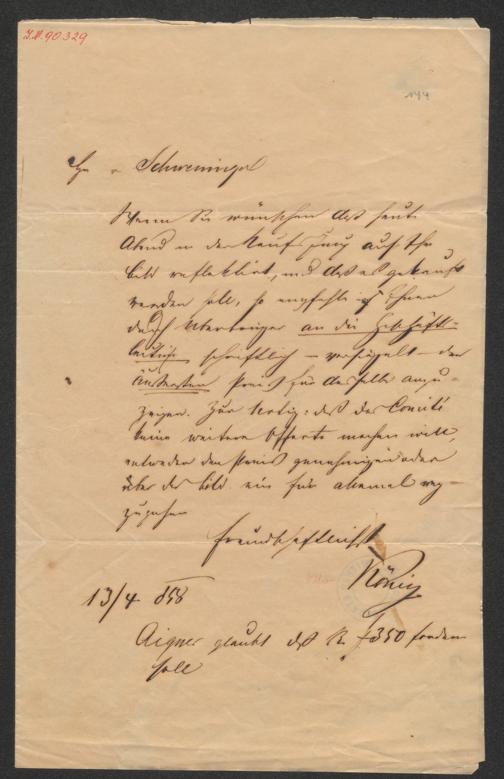 J.N. 90.329
144
Hr v Schweninger
Wenn Sie wünschen daß heute
Abend in der Kaufs Jury auf Ihr
Bild reflektirt, und daß es gekauft
werden soll, so empfehle ich Ihnen
durch Überbringer an die Geschäfts-
leitung schriftlich – versiegelt – den
äußersten Preis für dasselbe anzu-
zeigen. Zur Notiz: daß das Comité
keine weitere Offerte machen will,
entweder den Preis genehmigend oder
über das Bild ein für allemal weg-
zugehen
freundschaftlichst
König
13/4 858
Aigner glaubt daß Sie f 350 fordern
soll